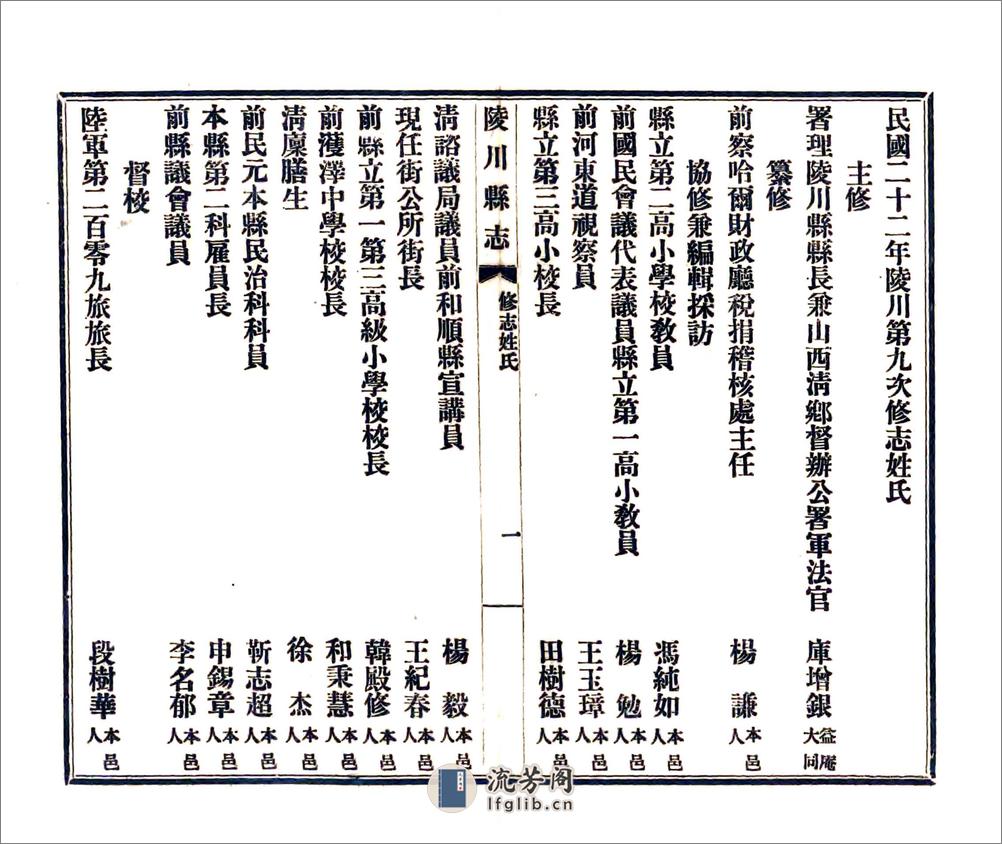 民國二十二年陵川第九次修志姓氏
主修
署理陵川縣縣長兼山西清鄉督辦公署軍法官 庫增銀 益庵 大同
纂修
前察哈爾財政廳稅捐稽核處主任 楊謙 本邑人
協修兼編輯採訪
縣立第二高小學校教員 馮純如 本邑人
前國民會議代表議員縣立第一高小教員 楊勉 本邑人
前河東道視察員 王玉璋 本邑人
縣立第三高小校長 田樹德 本邑人
陵川縣志 修志姓氏 一
清諮議局議員前和順縣宣講員 楊毅 本邑人
現任街公所街長 王紀春 本邑人
前縣立第一第三高級小學校校長 韓殿修 本邑人
前濩澤中學校校長 和秉慧 本邑人
清廩膳生 徐杰 本邑人
前民元本縣民治科科員 靳志超 本邑人
本縣第二科雇員長 申錫章 本邑人
前縣議會議員 李名郁 本邑人
督校
陸軍第二百零九旅旅長 段樹華 本邑人
流芳阁
lfglib.cn